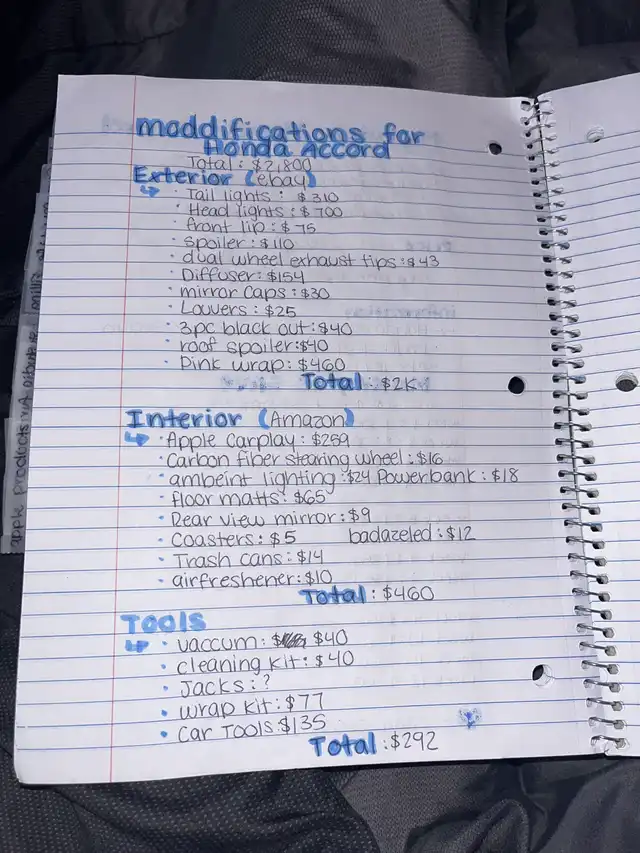 moddifications for
Honda Accord
Total: $2,800
Exterior (ebay)
Tail lights: $310
Head lights: $700
front lip: $75
spoiler: $110
dual wheel exhaust tips: $43
Diffuser: $154
mirror caps: $30
Louvers: $25
3pc black out: $40
roof spoiler: $40
Pink wrap: $460
Total: $2K
Interior (Amazon)
Apple Carplay: $259
Carbon fiber stearing wheel: $16
ambeint lighting: $24 Powerbank: $18
floor matts: $65
Rear view mirror: $9
Coasters: $5 badazeled: $12
Trash cans: $14
airfreshener: $10
Total: $460
Tools
vaccum: $40
cleaning kit: $40
Jacks: ?
wrap kit: $77
Car Tools $135
Total: $292
apple products